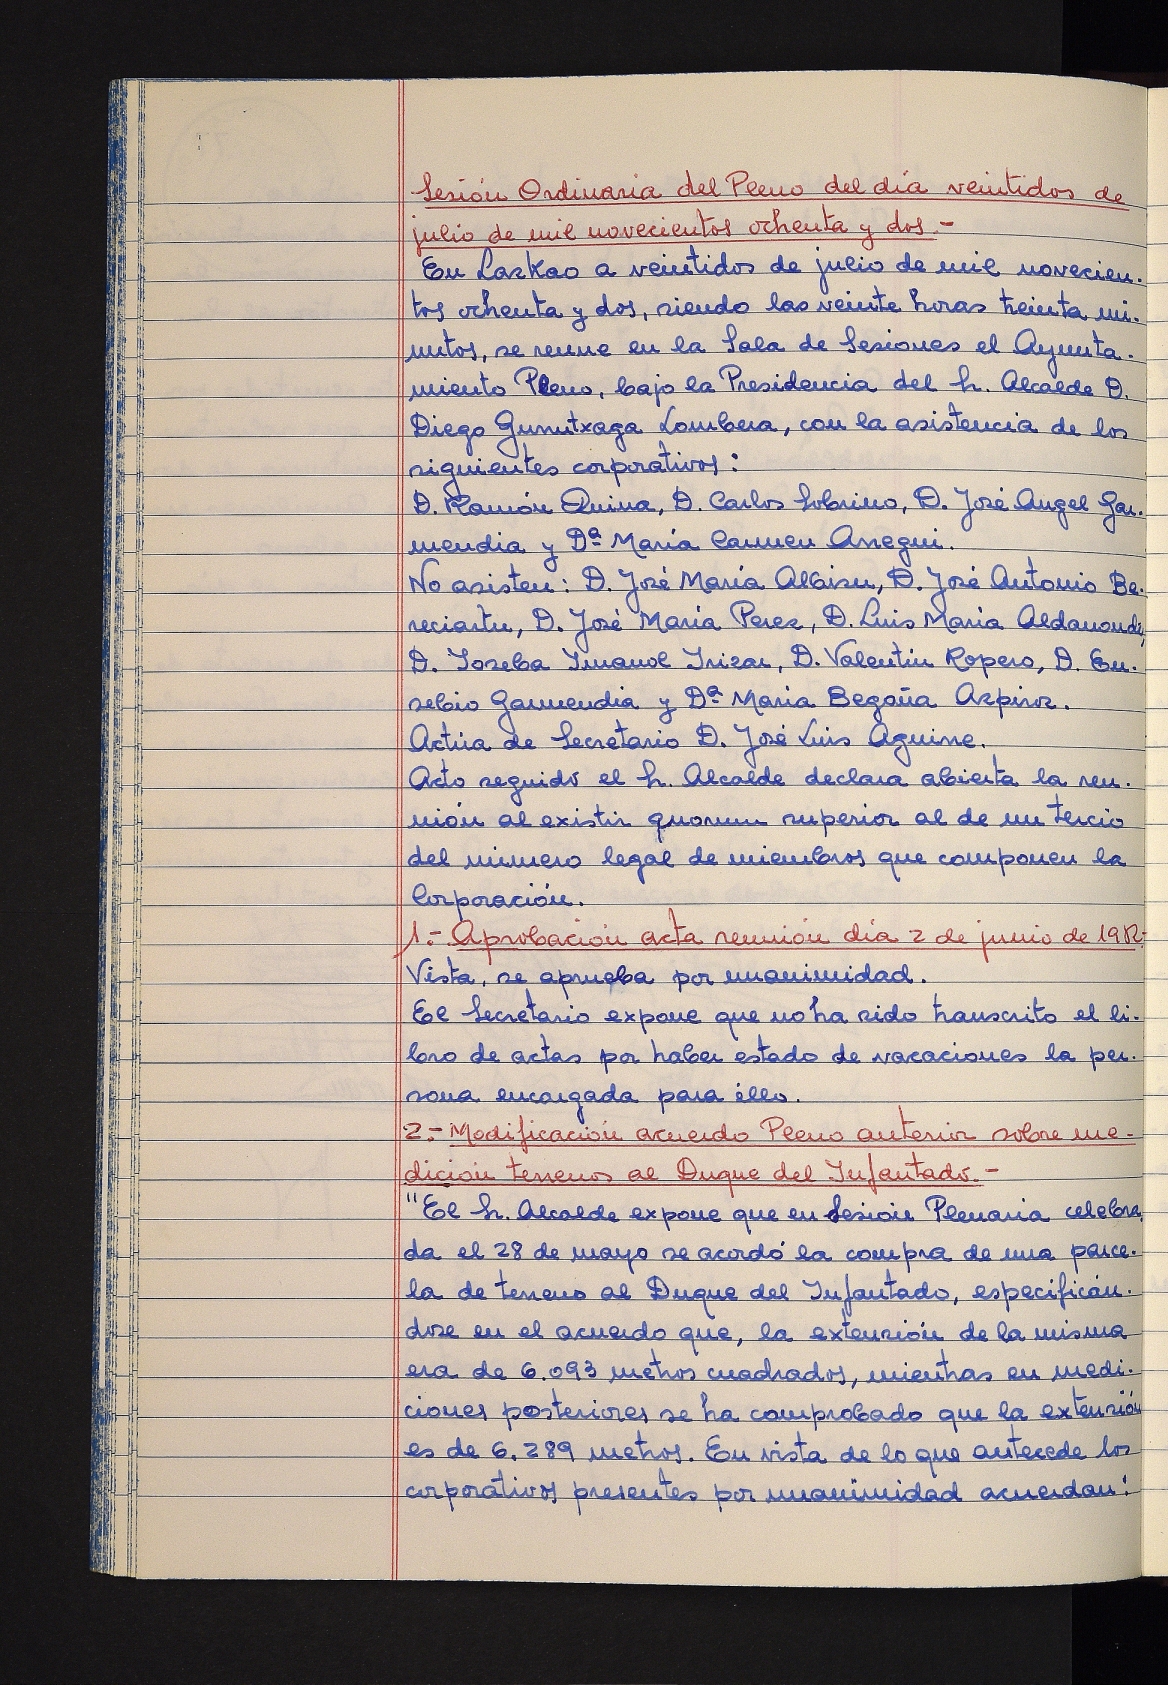 Sesión Ordinaria del Pleno del día veintidos de
julio de mil novecientos ochenta y dos.-
En Lazkao a veintidos de julio de mil novecien-
tos ochenta y dos, siendo las veinte horas treinta mi-
nutos, se reune en la Sala de Sesiones el Ayunta-
miento Pleno, bajo la Presidencia del Sr. Alcalde D.
Diego Gurrutxaga Lombera, con la asistencia de los
siguientes corporativos:
D. Ramón Quina, D. Carlos Sobrino, D. José Angel Gar-
mendia y Dª María Carmen Arregui.
No asisten: D. José María Albisu, D. José Antonio Be-
reciartu, D. José María Perez, D. Luis María Aldanondo,
D. Joseba Imanol Irizar, D. Valentin Ropero, D. Eu-
sebio Garmendia y Dª Maria Begoña Azpiroz.
Actúa de Secretario D. José Luis Aguirre.
Acto seguido el Sr. Alcalde declara abierta la reu-
nión al existir quorum superior al de un tercio
del número legal de miembros que componen la
Corporación.
1.- Aprobación acta reunión día 2 de junio de 1982.-
Vista, se aprueba por unanimidad.
El Secretario expone que no ha sido transcrito el li-
bro de actas por haber estado de vacaciones la per-
sona encargada para éllo.
2.- Modificación acuerdo Pleno anterior sobre me-
dición terrenos al Duque del Infantado.-
"El Sr. Alcalde expone que en Sesión Plenaria celebra
da el 28 de mayo se acordó la compra de una parce-
la de terreno al Duque del Infantado, especificán-
dose en el acuerdo que, la extensión de la misma
era de 6.093 metros cuadrados, mientras en medi-
ciones posteriores se ha comprobado que la extensión
es de 6.289 metros. En vista de lo que antecede los
corporativos presentes por unanimidad acuerdan: